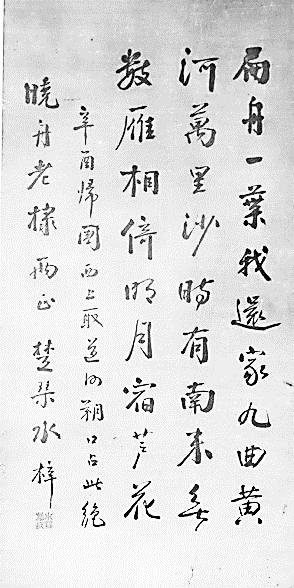 扁舟一葉我還家九曲黃
河萬里沙時有南来無
數雁相倚明月宿芦花
辛酉歸國西上取道河朔口占此絶
曉舟老棣兩正 楚琴水梓